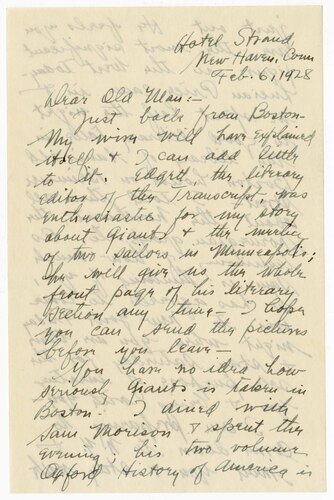 Hotel Strand,
New Haven, Conn
Feb. 6, 1928
Dear Old Man:-
Just back from Boston-
My wire will have explained
itself & I can add little
to it. Edgett, the literary
editor of the Transcript, was
enthusiastic for my story
about Giants & the meeting
of two sailors in Minneapolis;
he will give us the whole
front page of his literary
section any time - I hope
you can send the pictures
before you leave -
You have no idea how
seriously Giants is taken in
Boston. I dined with
Sam Morison & spent the
evening; his two volume
Oxford History of America is